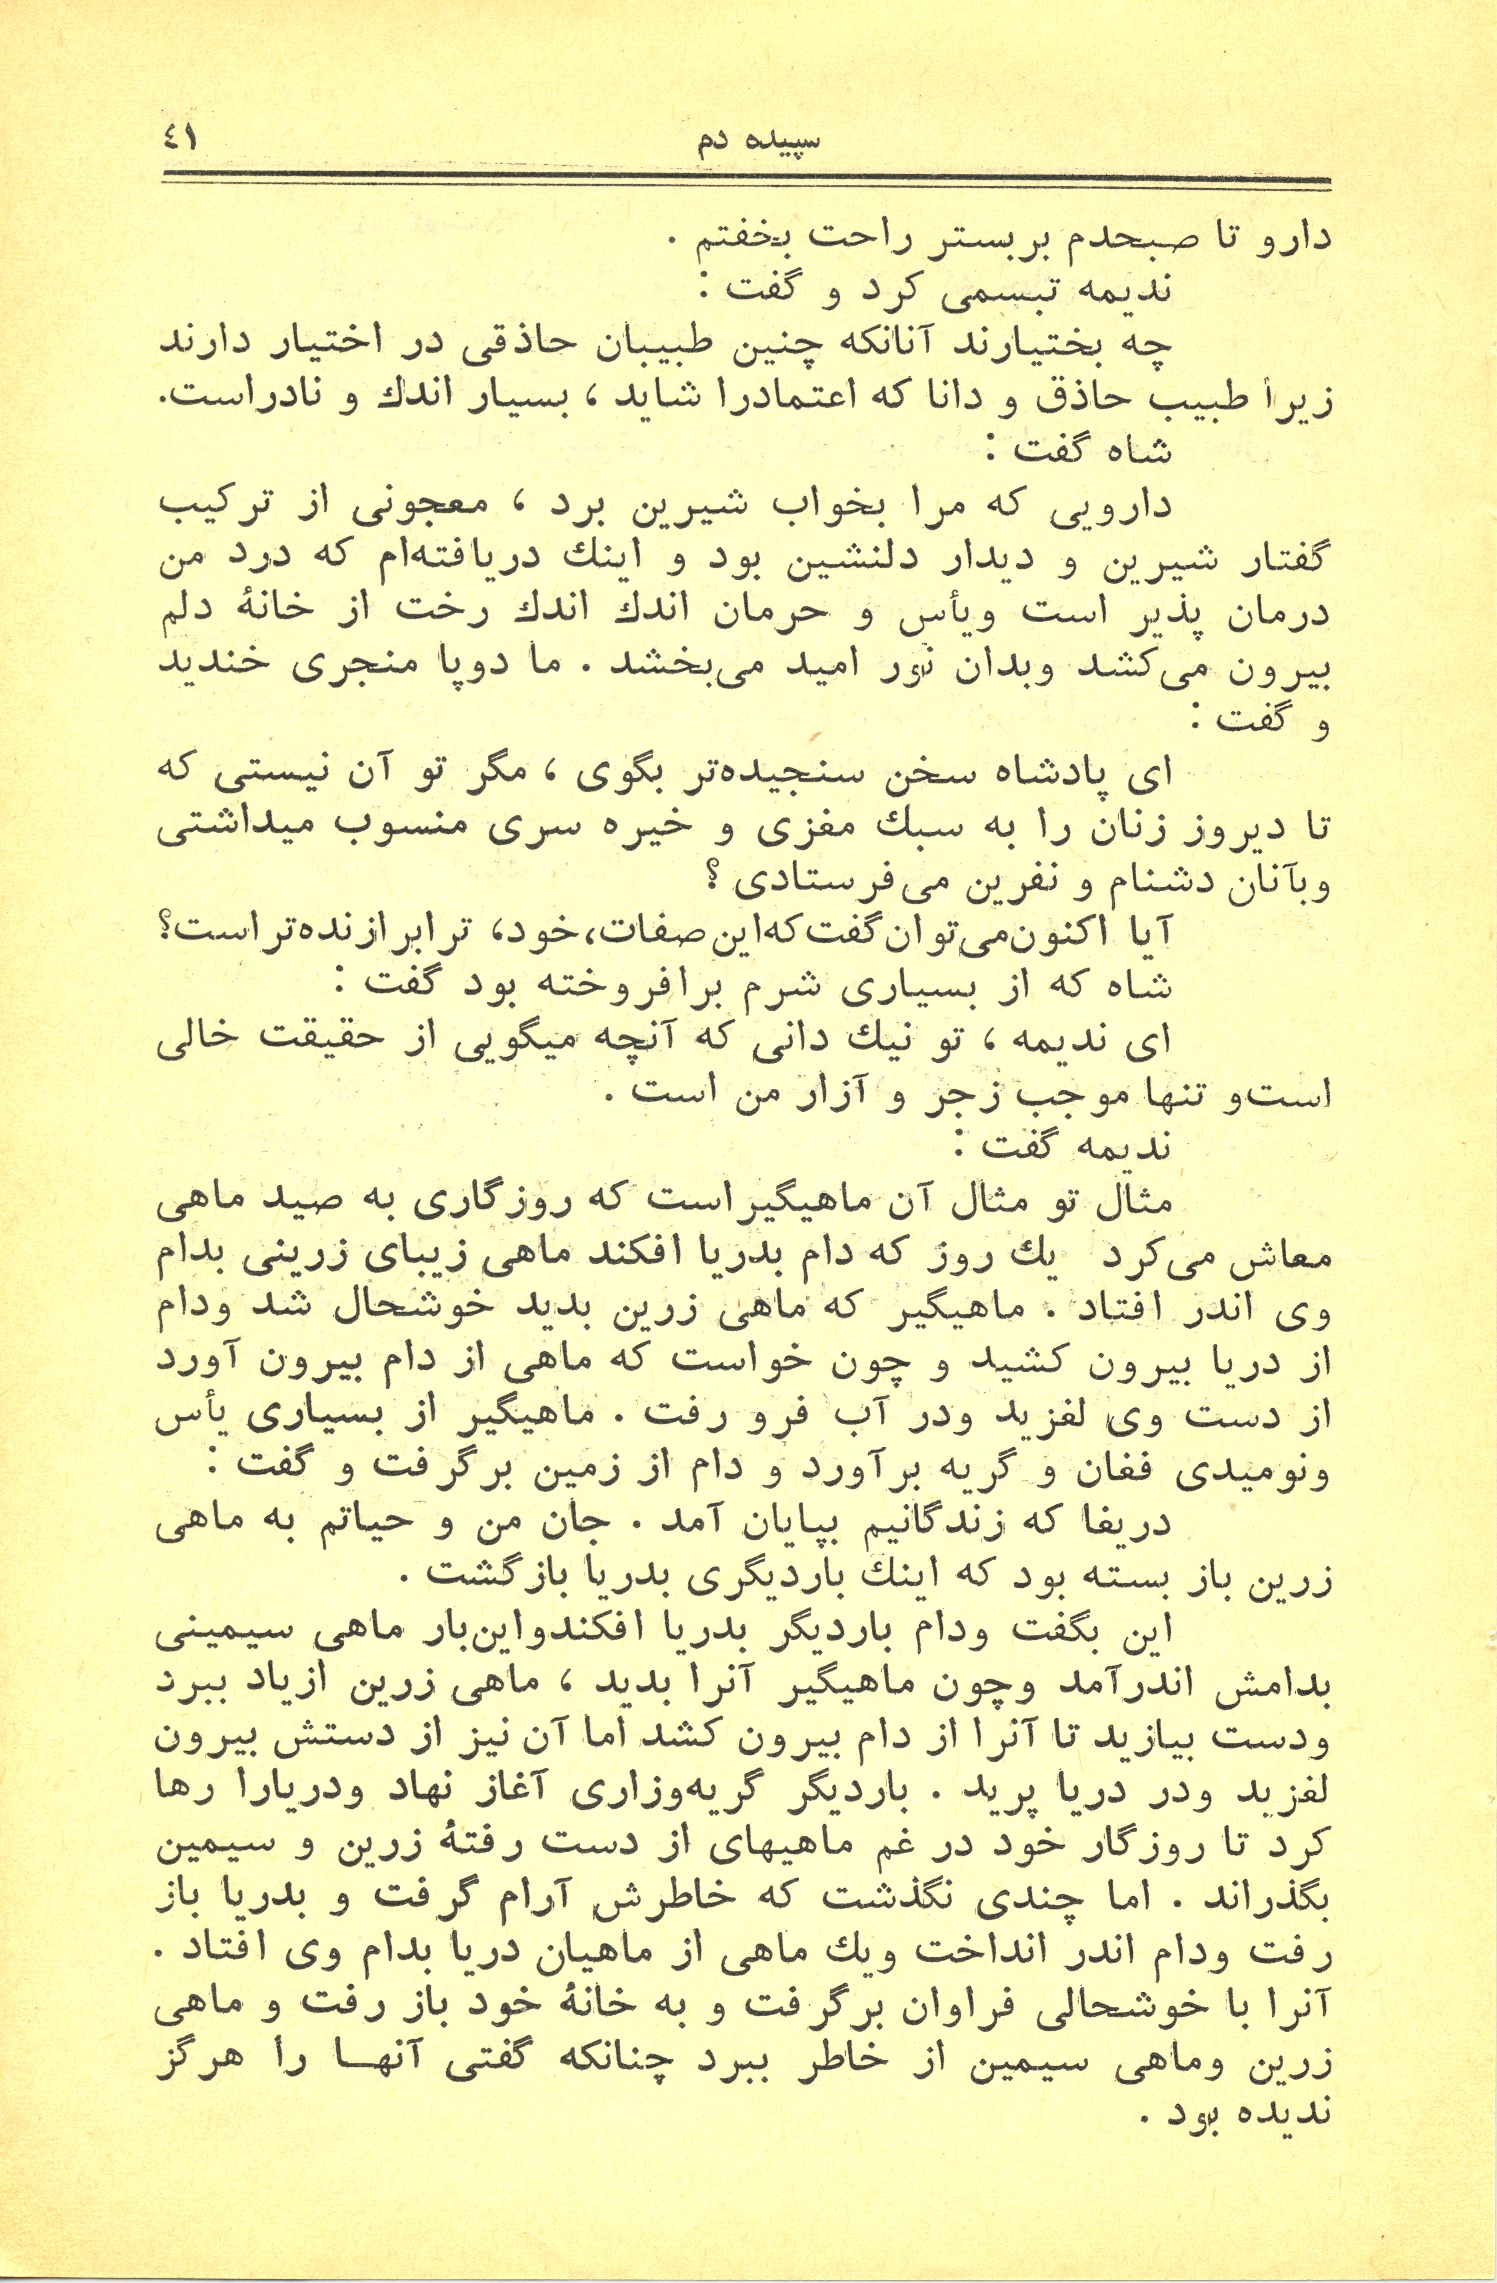 سپیده دم ٤١
دارو تا صبحدم بربستر راحت بخفتم .
ندیمه تبسمی کرد و گفت :
چه بختیارند آنانکه چنین طبیبان حاذقی در اختیار دارند
زیرا طبیب حاذق و دانا که اعتمادرا شاید ، بسیار اندك و نادراست.
شاه گفت :
دارویی که مرا بخواب شیرین برد ، معجونی از ترکیب
گفتار شیرین و دیدار دلنشین بود و اینك دریافته‌ام که درد من
درمان پذیر است ویأس و حرمان اندك اندك رخت از خانهٔ دلم
بیرون می‌کشد وبدان نور امید می‌بخشد . ما دوپا منجری خندید
و گفت :
ای پادشاه سخن سنجیده‌تر بگوی ، مگر تو آن نیستی که
تا دیروز زنان را به سبك مغزی و خیره سری منسوب میداشتی
وبآنان دشنام و نفرین می‌فرستادی ؟
آیا اکنون‌می‌توان‌گفت‌که‌این‌صفات،خود، ترابرازنده‌تراست؟
شاه که از بسیاری شرم برافروخته بود گفت :
ای ندیمه ، تو نیك دانی که آنچه میگویی از حقیقت خالی
است‌و تنها موجب زجر و آزار من است .
ندیمه گفت :
مثال تو مثال آن ماهیگیراست که روزگاری به صید ماهی
معاش می‌کرد یك روز که دام بدریا افکند ماهی زیبای زرینی بدام
وی اندر افتاد . ماهیگیر که ماهی زرین بدید خوشحال شد ودام
از دریا بیرون کشید و چون خواست که ماهی از دام بیرون آورد
از دست وی لغزید ودر آب فرو رفت . ماهیگیر از بسیاری یأس
ونومیدی فغان و گریه برآورد و دام از زمین برگرفت و گفت :
دریغا که زندگانیم بپایان آمد . جان من و حیاتم به ماهی
زرین باز بسته بود که اینك باردیگری بدریا بازگشت .
این بگفت ودام باردیگر بدریا افکندواین‌بار ماهی سیمینی
بدامش اندرآمد وچون ماهیگیر آنرا بدید ، ماهی زرین ازیاد ببرد
ودست بیازید تا آنرا از دام بیرون کشد اما آن نیز از دستش بیرون
لغزید ودر دریا پرید . باردیگر گریه‌وزاری آغاز نهاد ودریارا رها
کرد تا روزگار خود در غم ماهیهای از دست رفتهٔ زرین و سیمین
بگذراند . اما چندی نگذشت که خاطرش آرام گرفت و بدریا باز
رفت ودام اندر انداخت ویك ماهی از ماهیان دریا بدام وی افتاد .
آنرا با خوشحالی فراوان برگرفت و به خانهٔ خود باز رفت و ماهی
زرین وماهی سیمین از خاطر ببرد چنانکه گفتی آنهـا را هرگز
ندیده بود .